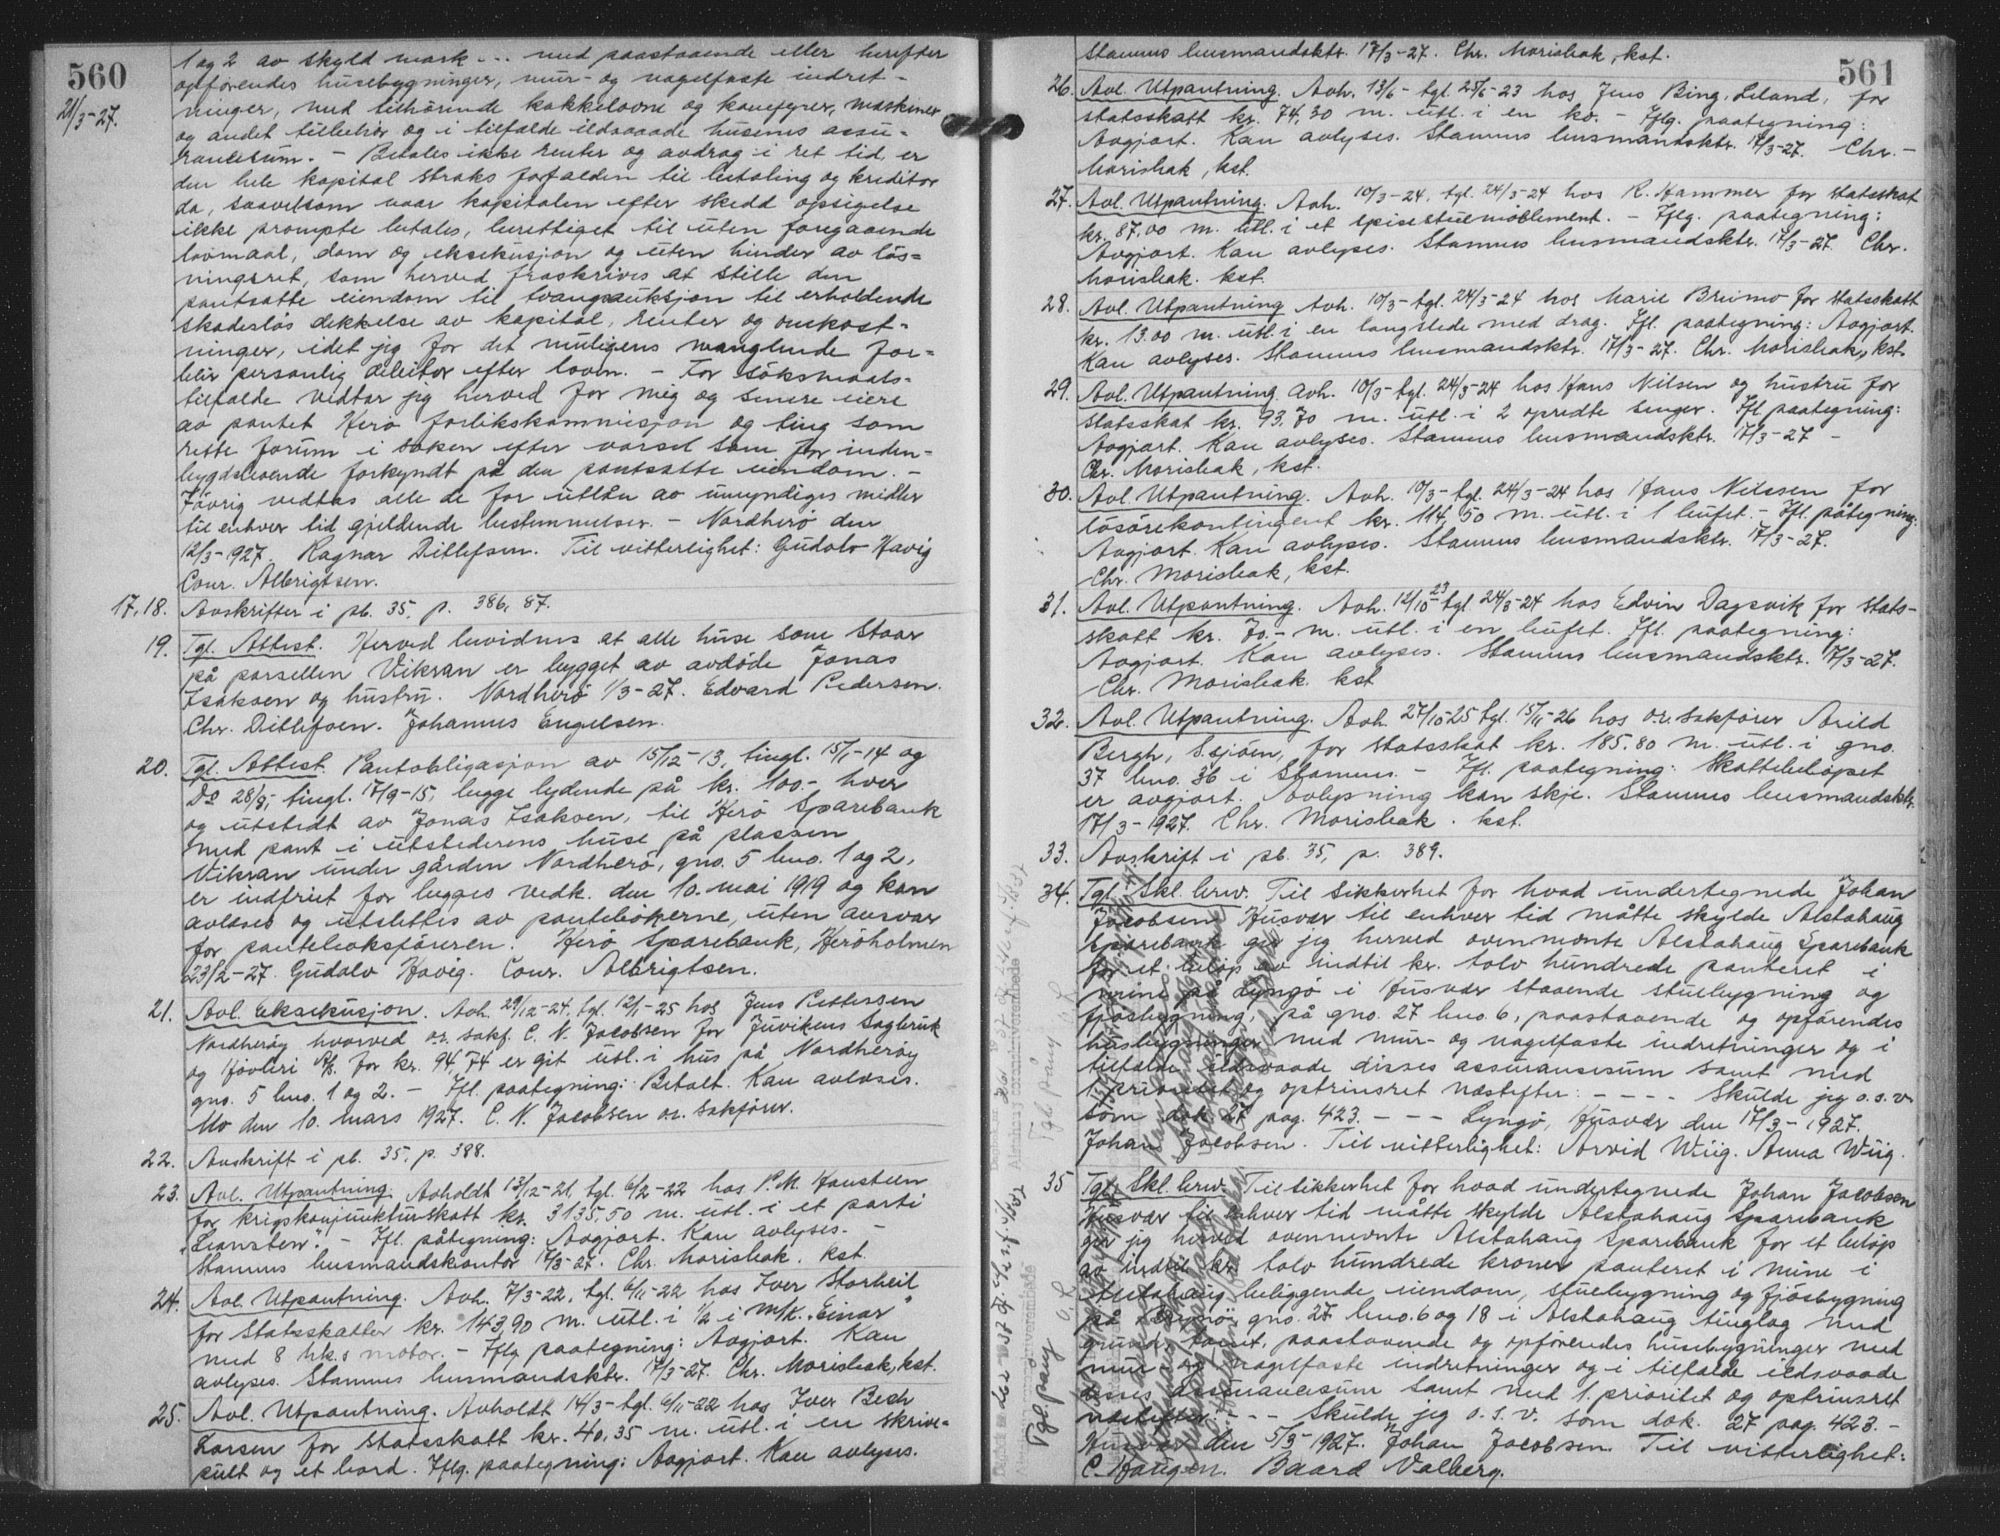 560
21/3-27.
1 og 2 av skyld mark --- med paastaaende eller herefter
opførendes husebygninger, mur- og nagelfaste indret-
ninger, med tilhörende kakkelovne og komfyrer, maskiner
og andet tilbehör og i tilfælde ildsvaade husenes assu-
rancesum. - Betales ikke renter og avdrag i ret tid, er
den hele kapital straks forfalden til betaling og kreditor
da, saavelsom naar kapitalen efter skedd opsigelse
ikke prompte betales, berettiget til uten foregaaende
lovmaal, dom og eksekusjon og uten hinder av lös-
ningsret, som herved fraskrives at stille den
pantsatte eiendom til tvangsauksjon til erholdende
skadeslös dekkelse av kapital, renter og omkost-
ninger, idet jeg for det muligens manglende for-
blir personlig debitor efter loven. - For söksmaals-
tilfælde vedtar jeg herved for mig og senere eiere
av pantet Herö forlikskommisjon og ting som
rette forum i saken efter varsel som for inden-
bygdsboende forkyndt på den pantsatte eiendom. -
Iövrig vedtas alle de for utlån av umyndiges midler
til enhver tid gjeldende bestemmelser. - Nordherö den
12/3-1927. Ragnar Ditlefsen. Til vitterlighet: Gudolv Havig
Conr. Albrigtsen.
17, 18. Avskrifter i pb. 35. p. 386, 87.
19. Tgl. Attest. Herved bevidnes at alle huse som staar
på parsellen Vikran er bygget av avdöde Jonas
Isaksen og hustru. Nordherö 1/3-27. Edvard Pedersen.
Chr. Ditlefsen. Johannes Engelsen.
20. Tgl. Attest. Pantobligasjon av 15/12-13, tingl. 15/1-14 og
Do 28/8, tingl. 17/9-15, begge lydende på kr. 100.- hver
og utstedt av Jonas Isaksen, til Herö Sparebank
med pant i utstederens huse på plassen
Vikran under gården Nordherö, gno. 5 bno. 1 og 2,
er indfriet for begges vedk. den 10. mai 1919 og kan
avlæses og utslettes av pantebökerne, uten ansvar
for panteboksföreren. Herö Sparebank, Heröholmen
23/2-27. Gudolv Havig. Conr. Albrigtsen.
21. Avl. Eksekusjon. Avh. 29/12-24, tgl. 12/1-25 hos Jens Pettersen
Nordheröy hvorved o.r. sakf. C. N. Jacobsen for Juvikens Sagbruk
og Hövleri A/S. for kr. 94,74 er git utl. i hus på Nordheröy
gno. 5 bno. 1 og 2. - Ifl. paategning: Betalt. Kan avlæses.
Mo den 10. mars 1927. C. N. Jacobsen o.r. sakförer.
22. Avskrift i pb. 35. p. 388.
23. Avl. Utpantning. Avholdt 13/12-21, tgl. 6/2-22 hos P. M. Hansteen
for krigskonjunkturskatt kr. 3135,50 m. utl. i et parti
- Ifl. påtegning: Avgjort. Kan avlyses. -
Stamnes lensmandskontor 17/3-27. Chr. Morisbak. kst.
24. Avl. Utpantning. Avh. 7/3-22, tgl. 6/11-22 hos Iver Storheil
for Statsskatter kr. 143,90 m. utl. i 1/2 i m/k. "Einar"
med 8 hk.s motor. - Iflg. paategning: Avgjort. Kan
avlyses. Stamnes lensmandsktr. 17/3-27. Chr. Morisbak, kst.
25. Avl. Utpantning. Avholdt 14/3- tgl. 6/11-22 hos Iver Bech
Larsen for Statsskatt kr. 40,35 m. utl. i en skrive-
pult og et bord. Iflg. paategning: Avgjort. Kan avlyses.
561
Stamnes lensmandsktr. 17/3-27. Chr. Morisbak, kst.
26. Avl. Utpantning. Avh. 13/6- tgl. 25/6-23 hos Jens Bing, Leland, for
statsskatt kr. 74,30 m. utl. i en ko. - Iflg. paategning:
Avgjort. Kan avlyses. Stamnes lensmandsktr. 17/3-27. Chr. -
Morisbak, kst.
27. Avl. Utpantning. Avh. 10/3-24, tgl. 24/3-24 hos R. Hammer for statsskat
kr. 87,00 m. utl. i et spisestuemöblement. - Iflg. paategning:
Avgjort. Kan avlyses. Stamnes lensmandsktr. 17/3-27. Chr.
Morisbak. kst.
28. Avl. Utpantning Avh. 10/3- tgl. 24/3-24 hos Marie Breimo for statsskatt
kr. 13.00 m. utl. i en langslede med drag. Ifl. paategning: Avgjort.
Kan avlyses. Stamnes lensmandsktr. 17/3-27. Chr. Morisbak, kst.
29. Avl. Utpantning. Avh. 10/3- tgl. 24/3-24 hos Hans Nilsen og hustru for
statsskat kr. 93.70 m. utl. i 2 opredte senger. Ifl. paategning:
Avgjort. Kan avlyses. Stamnes lensmandsktr. 17/3-27 -
Chr. Morisbak, kst.
30. Avl. Utpantning. Avh. 10/3- tgl. 24/3-24 hos Hans Nilssen for
lösörekontingent kr. 114,50 m. utl. i 1 bufet. - Ifl. påtegning:
Avgjort. Kan avlyses. Stamnes lensmandsktr. 17/3-27.
Chr. Morisbak, kst.
31. Avl. Utpantning. Avh. 12/10 23 tgl. 24/3-24 hos Edvin Dagsvik for stats-
skatt kr. 70.- m. utl. i en bufet. Ifl. paategning:
Avgjort. Kan avlyses. Stamnes lensmandsktr. 17/3-27.
Chr. Morisbak. kst
32. Avl. Utpantning. Avh. 27/10-25 tgl. 15/11-26 hos o.r. sakförer Arild
Bergh, S.sjöen, for statsskat kr. 185.80 m. utl. i gno.
37 bno. 36 i Stamnes. - Ifl. paategning: Skattebelöpet
er avgjort. Avlysning kan skje. Stamnes lensmandsktr.
17/3-1927. Chr. Morisbak. kst.
33. Avskrift i pb. 35, p. 389.
34. Tgl. Skl. brev. Til sikkerhet for hvad undertegnede Johan
Jacobsen Husvær til enhver tid måtte skylde Alstahaug
Sparebank gir jeg herved ovennevnte Alstahaug Sparebank
for et belöp av indtil kr. tolv hundrede panteret i
mine på Lyngö i Husvær staaende stuebygning og
fjösbygning, på gno. 27 bno. 6, paastaaende og opförendes
husbygninger med mur- og nagelfaste indretninger og i
tilfælde ildsvaade disses assurancesum samt med
1. prioritet og optrinsret næstefter: - - - - Skulde jeg o.s.v.
som dok. 27 pag. 423. - - - Lyngö, Husvær den 17/3-1927.
Johan Jacobsen. Til vitterlighet: Arvid Wiig. Anna Wiig.
35 Tgl. Skl. brev. Til sikkerhet for hvad undertegnede Johan Jacobsen
Husvær til enhver tid måtte skylde Alstahaug Sparebank
gir jeg herved ovennevnte Alstahaug Sparebank for et belöp
av indtil kr. tolv hundrede kroner panteret i mine i
Alstahaug beliggende eiendom, stuebygning og fjösbygning
på Lyngö gno. 27 bno. 6 og 18 i Alstahaug tinglag med
grund, tomt, paastaaende og opförendes husebygninger med
mur- og nagelfaste indretninger og i tilfælde ildsvaade
disses assurancesum samt med 1. prioritet og optrinsret
næstefter: - - - Skulde jeg o.s.v. som dok. 27 pag. 423. -
Husvær den 5/3 1927. Johan Jacobsen. Til vitterlighet:
C. Haugen. Baard Valberg.